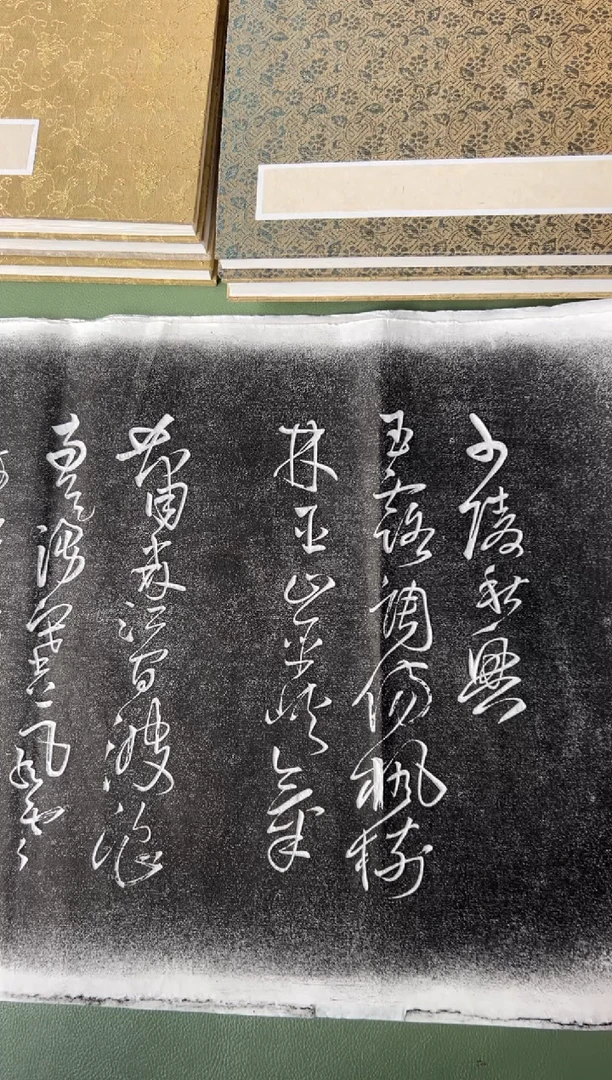 少陵秋興
玉露調傷楓樹
林巫山巫峽氣
蕭森江間波浪
兼天湧塞上風雲